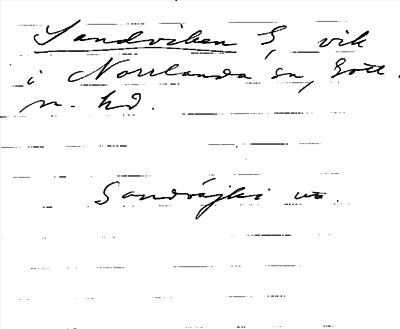 Sandviken G, vik
i Norrlanda sn, Gotl.
n. hd.
Sandvájki